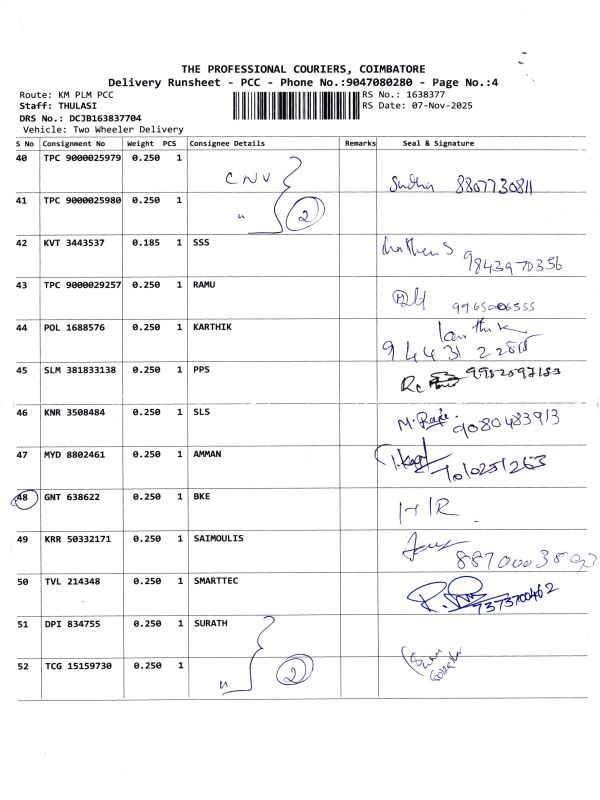 THE PROFESSIONAL COURIERS, COIMBATORE
Delivery Runsheet - PCC - Phone No.:9047080280 - Page No.:4
Route: KM PLM PCC
RS No.: 1638377
Staff: THULASI
RS Date: 07-Nov-2025
DRS No.: DCJB163837704
Vehicle: Two Wheeler Delivery
S No Consignment No Weight PCS Consignee Details Remarks Seal & Signature
40 TPC 9000025979 0.250 1 CNV Sudha 8807730811
41 TPC 9000025980 0.250 1 " 2
42 KVT 3443537 0.185 1 SSS 9843970356
43 TPC 9000029257 0.250 1 RAMU 9965006555
44 POL 1688576 0.250 1 KARTHIK
45 SLM 381833138 0.250 1 PPS
46 KNR 3508484 0.250 1 SLS 9080483913
47 MYD 8802461 0.250 1 AMMAN
48 GNT 638622 0.250 1 BKE
49 KRR 50332171 0.250 1 SAIMOULIS
50 TVL 214348 0.250 1 SMARTTEC 7373700462
51 DPI 834755 0.250 1 SURATH
52 TCG 15159730 0.250 1 " 2